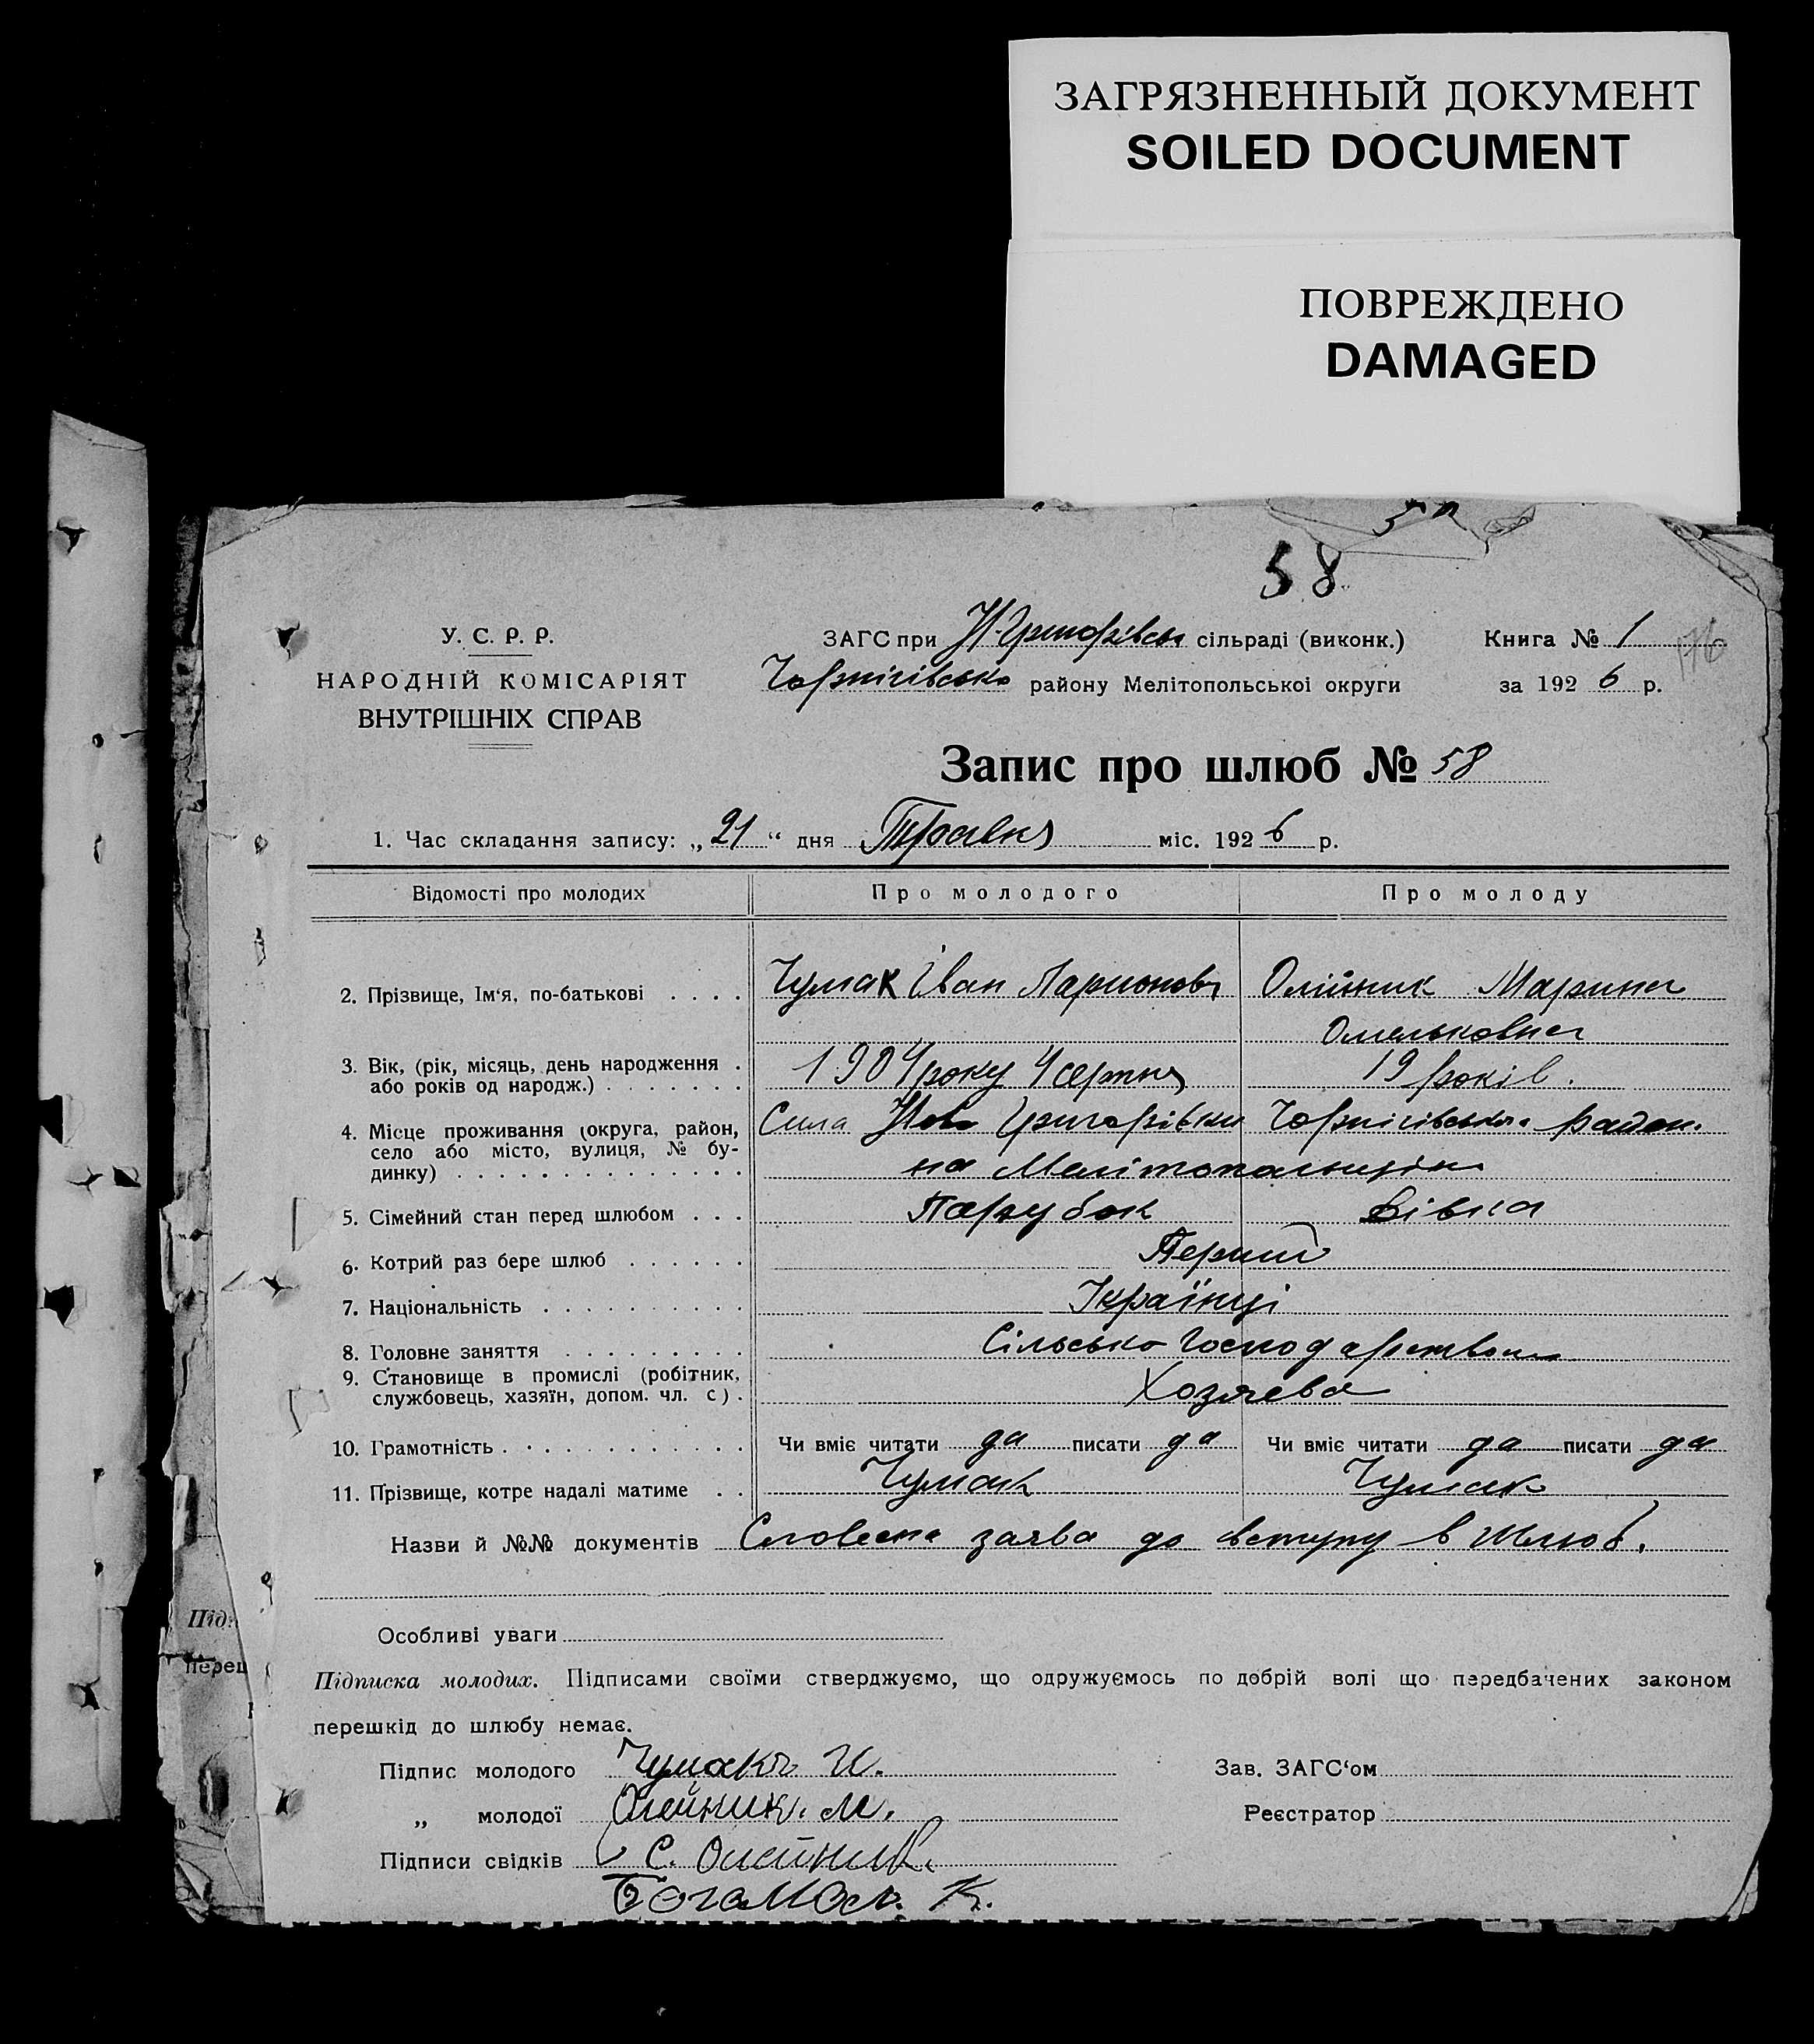 ЗАГРЯЗНЕННЫЙ ДОКУМЕНТ
SOILED DOCUMENT
ПОВРЕЖДЕНО
DAMAGED
58
У. С. Р. Р.
НАРОДНІЙ КОМІСАРІЯТ
ВНУТРІШНІХ СПРАВ
ЗАГС при Н-Григорівськ сільраді (виконк.)
Чернігівсько району Мелітопольської округи
Книга № 1
176
за 1926 р.
Запис про шлюб № 58
1. Час складання запису: „21“ дня Травня міс. 1926 р.
Відомості про молодих Про молодого Про молоду
2. Прізвище, Ім'я, по-батькові . . . . Чумак Іван Ларионов Олійник Марина
Омельковна
3. Вік, (рік, місяць, день народження . або років од народж.) . . . . . . . 1904 року 4 серпня 19 років.
4. Місце проживання (округа, район, село або місто, вулиця, № будинку) . . . . . . . . . . . . . . Села Ново Григорівки Чернігівського район.
на Мелітопольщіни
5. Сімейний стан перед шлюбом . . . Парубок Дівка
6. Котрий раз бере шлюб . . . . . . Перший
7. Національність . . . . . . . . . . Українці
8. Головне заняття . . . . . . . . . Сільсько господарством
9. Становище в промислі (робітник, службовець, хазяїн, допом. чл. с) . Хозяева
10. Грамотність . . . . . . . . . . . . Чи вміє читати да писати да Чи вміє читати да писати да
11. Прізвище, котре надалі матиме . . Чумак Чумак
Назви й №№ документів Словесна заява до вступу в шлюб.
Особливі уваги
Під
перец
Підписка молодих. Підписами своїми стверджуємо, що одружуємось по добрій волі що передбачених законом
перешкід до шлюбу немає.
Підпис молодого Чумакъ И. Зав. ЗАГС'ом
„ молодої Олейник. М. Реєстратор
Підписи свідків С. Олейник.
Богамол. К.